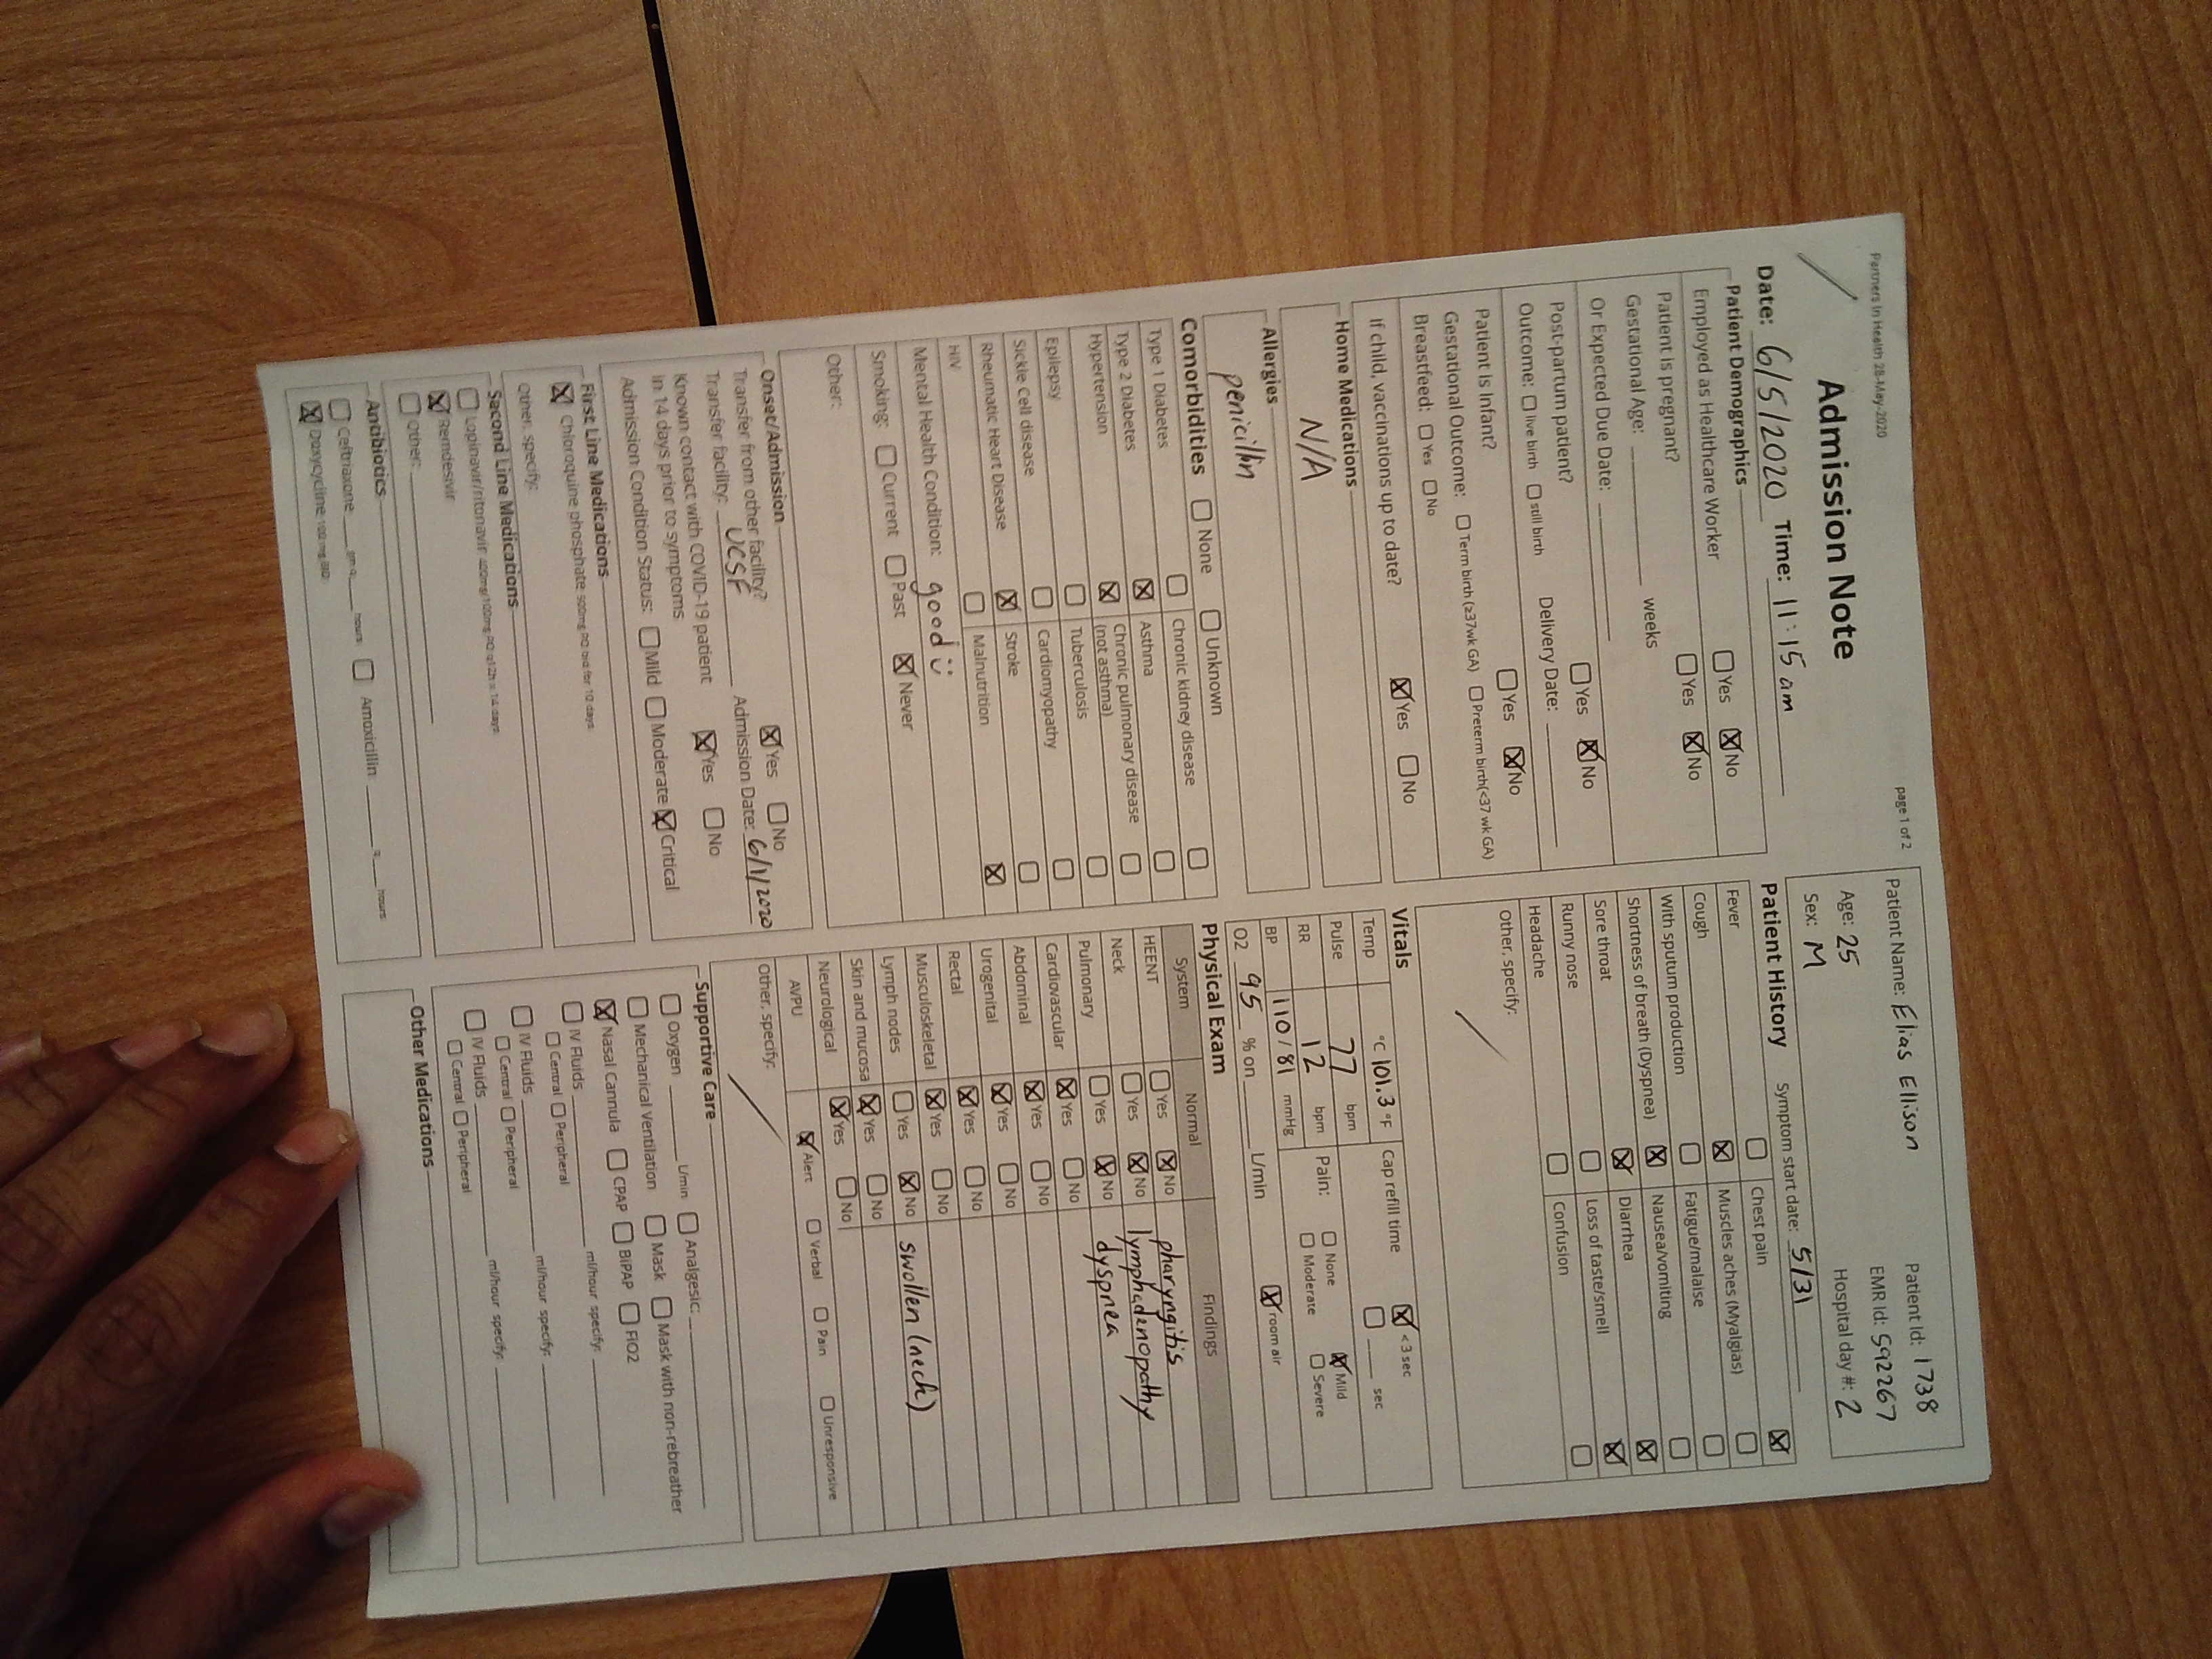 Partners In Health 28-May-2020
page 1 of 2
Admission Note
Date: 6/5/2020 Time: 11:15 am
Patient Name: Elias Ellison
Patient Id: 1738
Age: 25
EMR Id: 592267
Sex: M
Hospital day #: 2
Patient Demographics
Employed as Healthcare Worker ☐ Yes ☒ No
Patient is pregnant? ☐ Yes ☒ No
Gestational Age: ____ weeks
Or Expected Due Date: ____
Post-partum patient? ☐ Yes ☒ No
Outcome: ☐ live birth ☐ still birth Delivery Date: ____
Patient is Infant? ☐ Yes ☒ No
Gestational Outcome: ☐ Term birth (≥37wk GA) ☐ Preterm birth(<37 wk GA)
Breastfeed: ☐ Yes ☐ No
If child, vaccinations up to date? ☒ Yes ☐ No
Home Medications
N/A
Allergies
penicillin
Comorbidities ☐ None ☐ Unknown
Type 1 Diabetes ☐ Chronic kidney disease ☐
Type 2 Diabetes ☒ Asthma ☐
Hypertension ☒ Chronic pulmonary disease ☐
(not asthma)
Epilepsy ☐ Tuberculosis ☐
Sickle Cell disease ☐ Cardiomyopathy ☐
Rheumatic Heart Disease ☒ Stroke ☐
HIV ☐ Malnutrition ☒
Mental Health Condition: good ü
Smoking: ☐ Current ☐ Past ☒ Never
Other:
Onset/Admission
Transfer from other facility? ☒ Yes ☐ No
Transfer facility: UCSF Admission Date: 6/1/2020
Known contact with COVID-19 patient ☒ Yes ☐ No
in 14 days prior to symptoms
Admission Condition Status: ☐ Mild ☐ Moderate ☒ Critical
First Line Medications
☒ Chloroquine phosphate 500mg PO bid for 10 days
Other, specify:
Second Line Medications
☐ Lopinavir/ritonavir 400mg/100mg PO q12h x 14 days
☒ Remdesivir
☐ Other: ____
Antibiotics
☐ Ceftriaxone ____ gm q ____ hours ☐ Amoxicillin ____ q ____ hours
☒ Doxycycline 100 mg BID
Patient History Symptom start date: 5/31
Fever ☐ Chest pain ☒
Cough ☒ Muscles aches (Myalgias) ☐
With sputum production ☐ Fatigue/malaise ☐
Shortness of breath (Dyspnea) ☒ Nausea/vomiting ☐
Sore throat ☒ Diarrhea ☒
Runny nose ☐ Loss of taste/smell ☒
Headache ☐ Confusion ☐
Other, specify:
Vitals
Temp °C 101.3 °F Cap refill time ☒ <3 sec
☐ ____ sec
Pulse 77 bpm
RR 12 bpm
Pain: ☐ None ☒ Mild
☐ Moderate ☐ Severe
BP 110/81 mmHg
O2 95 % on ____ L/min ☒ room air
Physical Exam
System Normal Findings
HEENT ☐ Yes ☒ No pharyngitis
Neck ☐ Yes ☒ No lymphadenopathy
Pulmonary ☐ Yes ☒ No dyspnea
Cardiovascular ☒ Yes ☐ No
Abdominal ☒ Yes ☐ No
Urogenital ☒ Yes ☐ No
Rectal ☒ Yes ☐ No
Musculoskeletal ☒ Yes ☐ No
Lymph nodes ☐ Yes ☒ No swollen (neck)
Skin and mucosa ☒ Yes ☐ No
Neurological ☒ Yes ☐ No
AVPU ☒ Alert ☐ Verbal ☐ Pain ☐ Unresponsive
Other, specify:
Supportive Care
☐ Oxygen ____ L/min ☐ Analgesic: ____
☐ Mechanical Ventilation ☐ Mask ☐ Mask with non-rebreather
☒ Nasal Cannula ☐ CPAP ☐ BiPAP ☐ FiO2
☐ IV Fluids ____ ml/hour specify: ____
☐ Central ☐ Peripheral
☐ IV Fluids ____ ml/hour specify: ____
☐ Central ☐ Peripheral
☐ IV Fluids ____ ml/hour specify: ____
☐ Central ☐ Peripheral
Other Medications